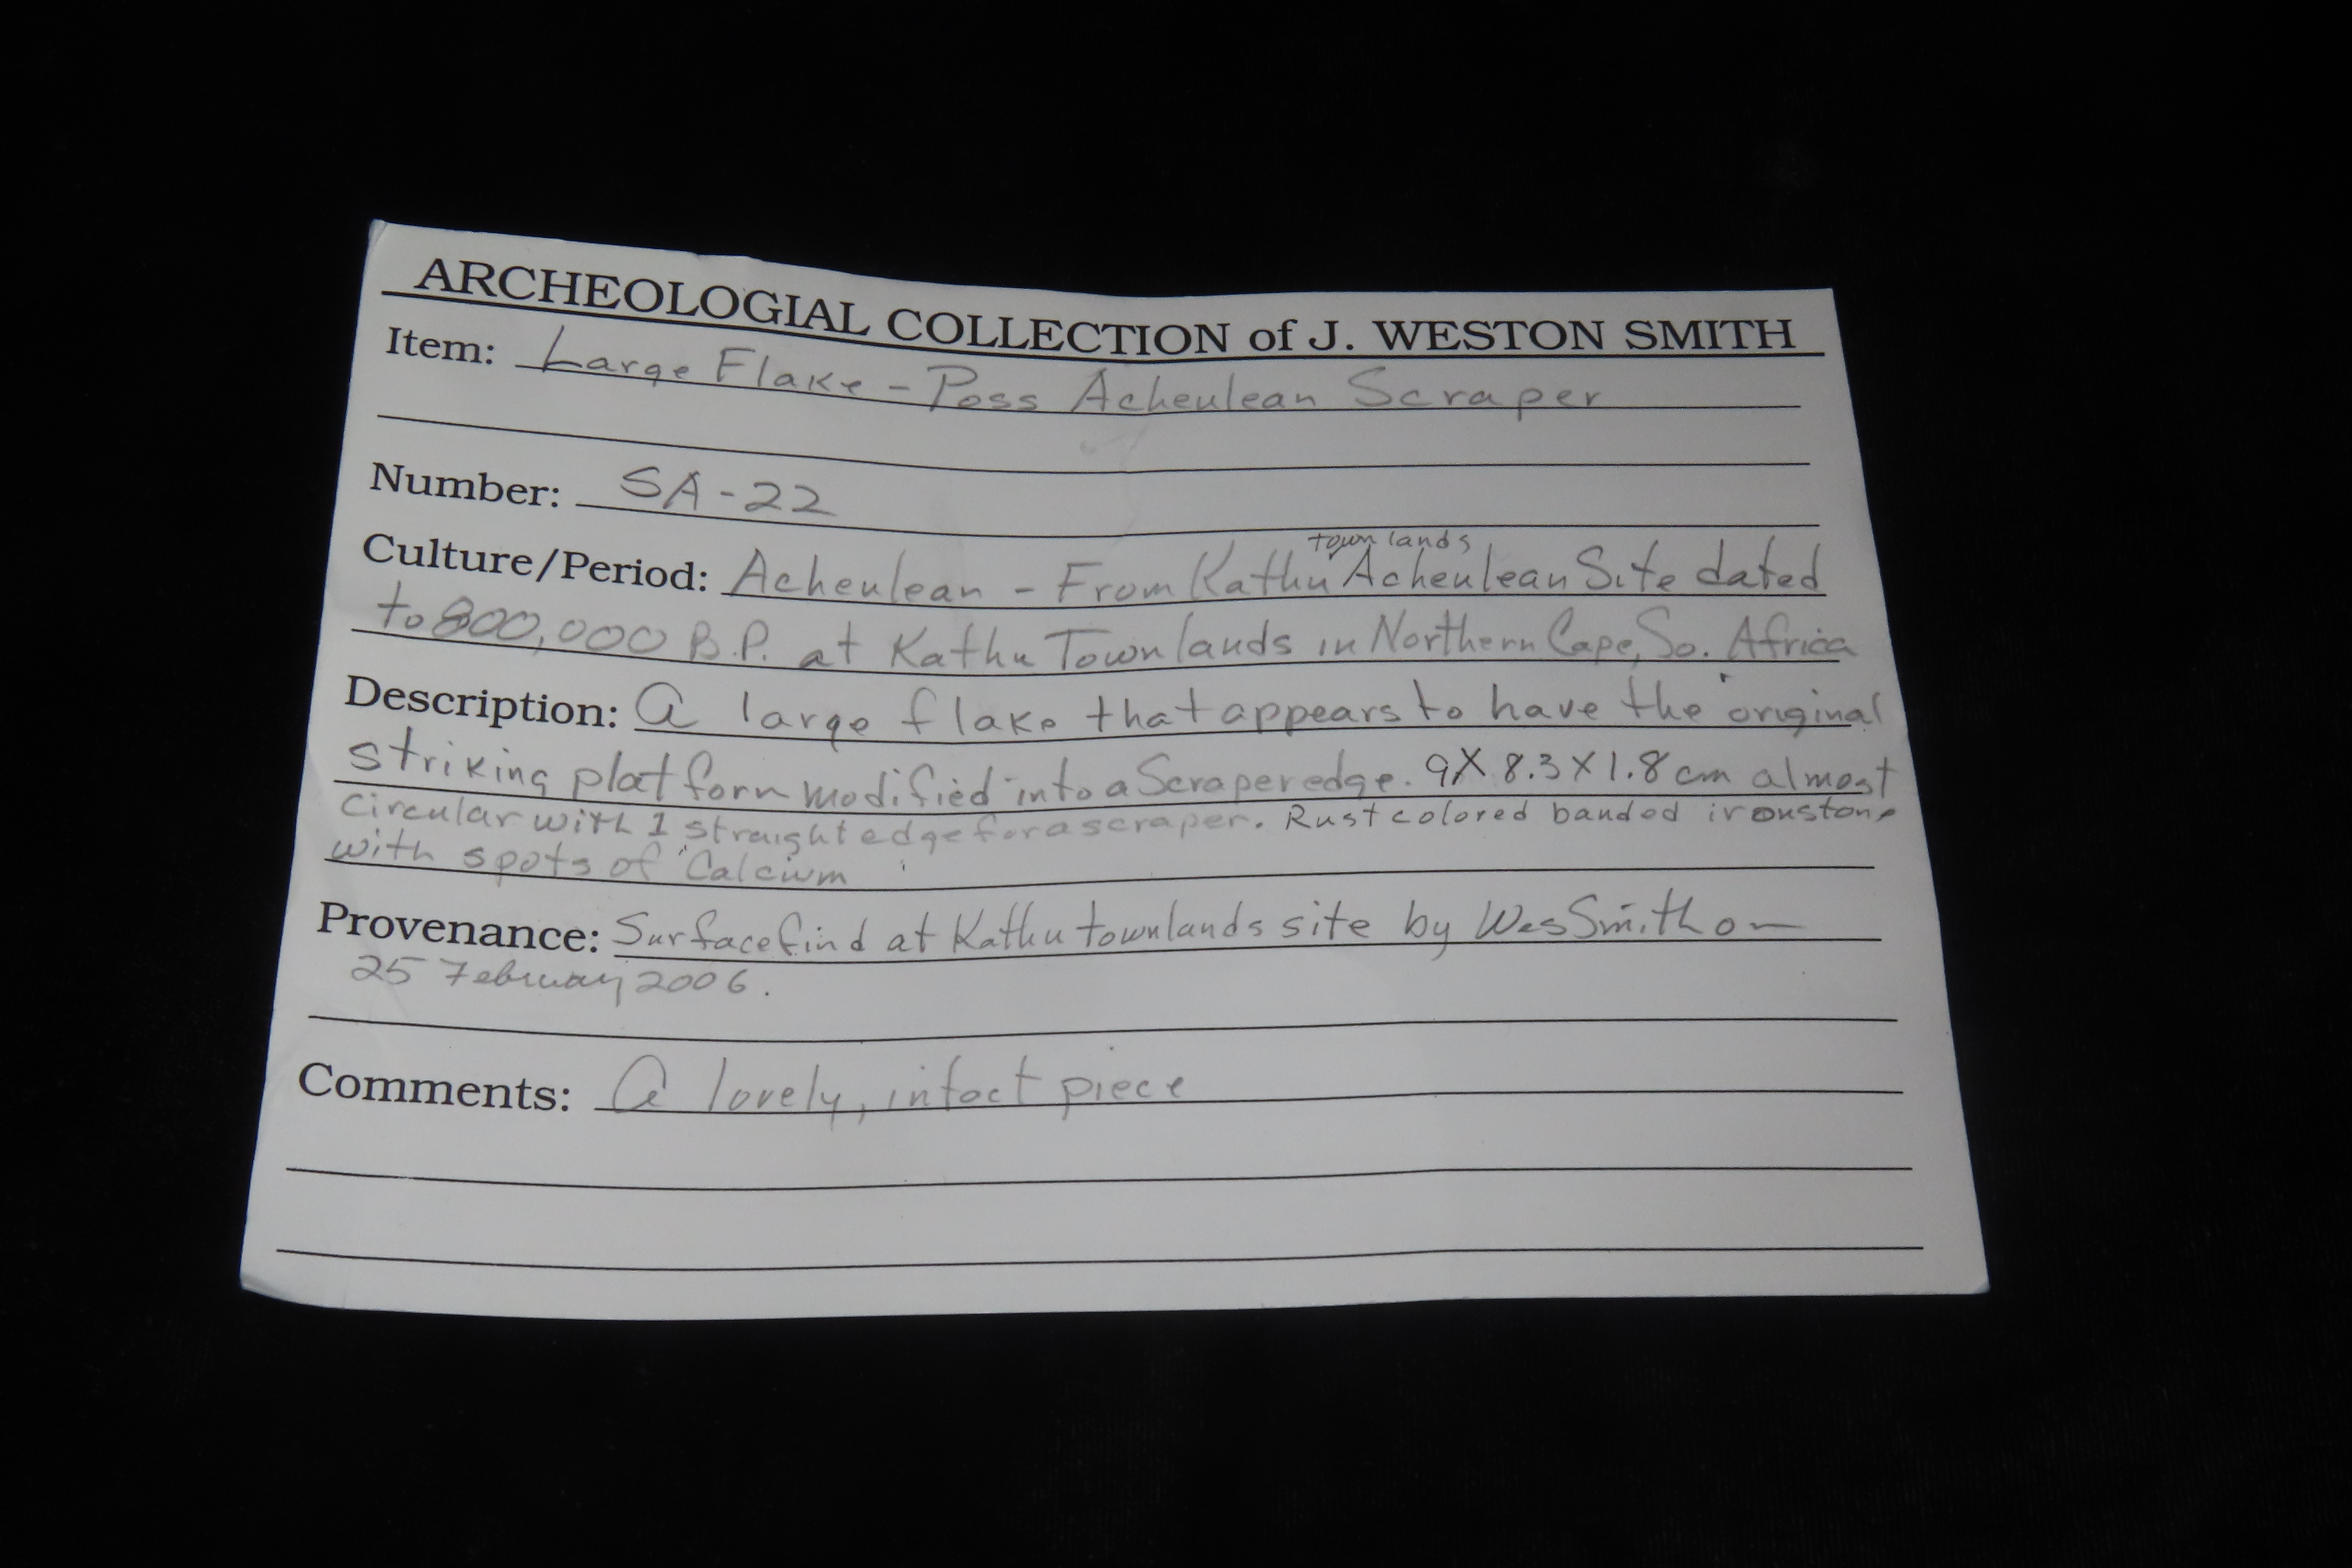 ARCHEOLOGIAL COLLECTION of J. WESTON SMITH
Item: Large Flake - Poss Acheulean Scraper
Number: SA-22
townlands
Culture/Period: Acheulean - From Kathu Acheulean Site dated
to 800,000 B.P. at Kathu Townlands in Northern Cape, So. Africa
Description: A large flake that appears to have the original
striking platform modified into a Scraper edge. 9 X 8.3 X 1.8 cm almost
circular with 1 straight edge for a scraper. Rust colored banded ironstone
with spots of Calcium
Provenance: Surface find at Kathu townlands site by Wes Smith on
25 February 2006.
Comments: A lovely, intact piece